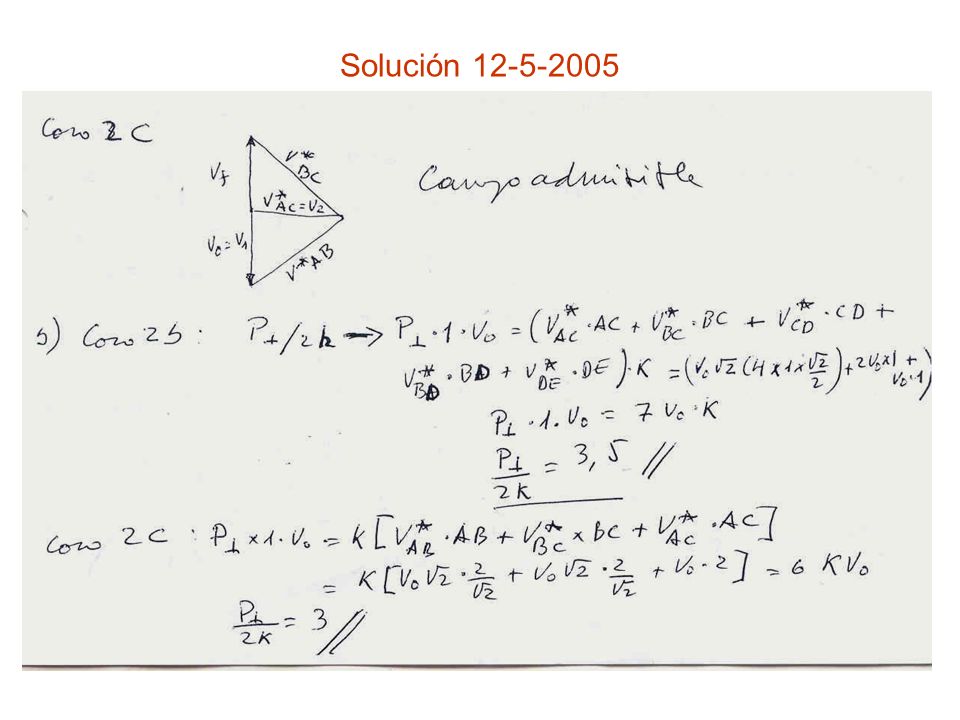 Solución 12-5-2005
Caso 2 C
V*BC
Vf
Campo admisible
V*AC = V2
V0 = V1
V*AB
b) Caso 2b : P⊥/2k → P⊥ · 1 · V0 = (V*AC · AC + V*BC · BC + V*CD · CD +
V*BD · BD + V*DE · DE) · K = (V0 √2 (4 x 1 x √2/2) + 2V0 x 1 + V0 · 1)
P⊥ · 1 · V0 = 7 V0 · K
P⊥/2K = 3,5 //
Caso 2C : P⊥ x 1 · V0 = K [V*AB · AB + V*BC x BC + V*AC · AC]
= K [V0 √2 · 2/√2 + V0 √2 · 2/√2 + V0 · 2] = 6 K V0
P⊥/2K = 3 //